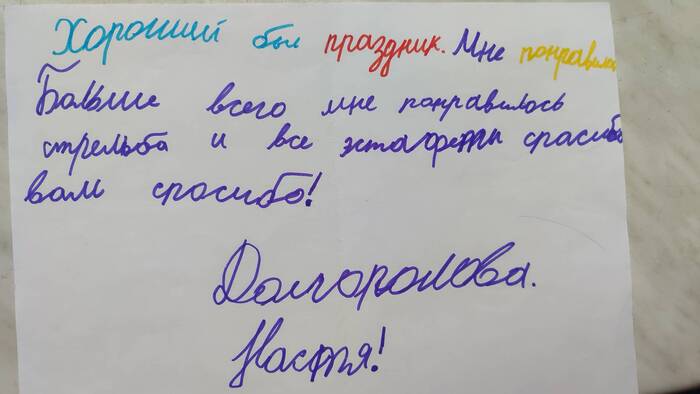 Хороший был праздник. Мне понравилось
Больше всего мне понравилось
стрельба и все эстафеты спасибо
вам спасибо!
Настя!